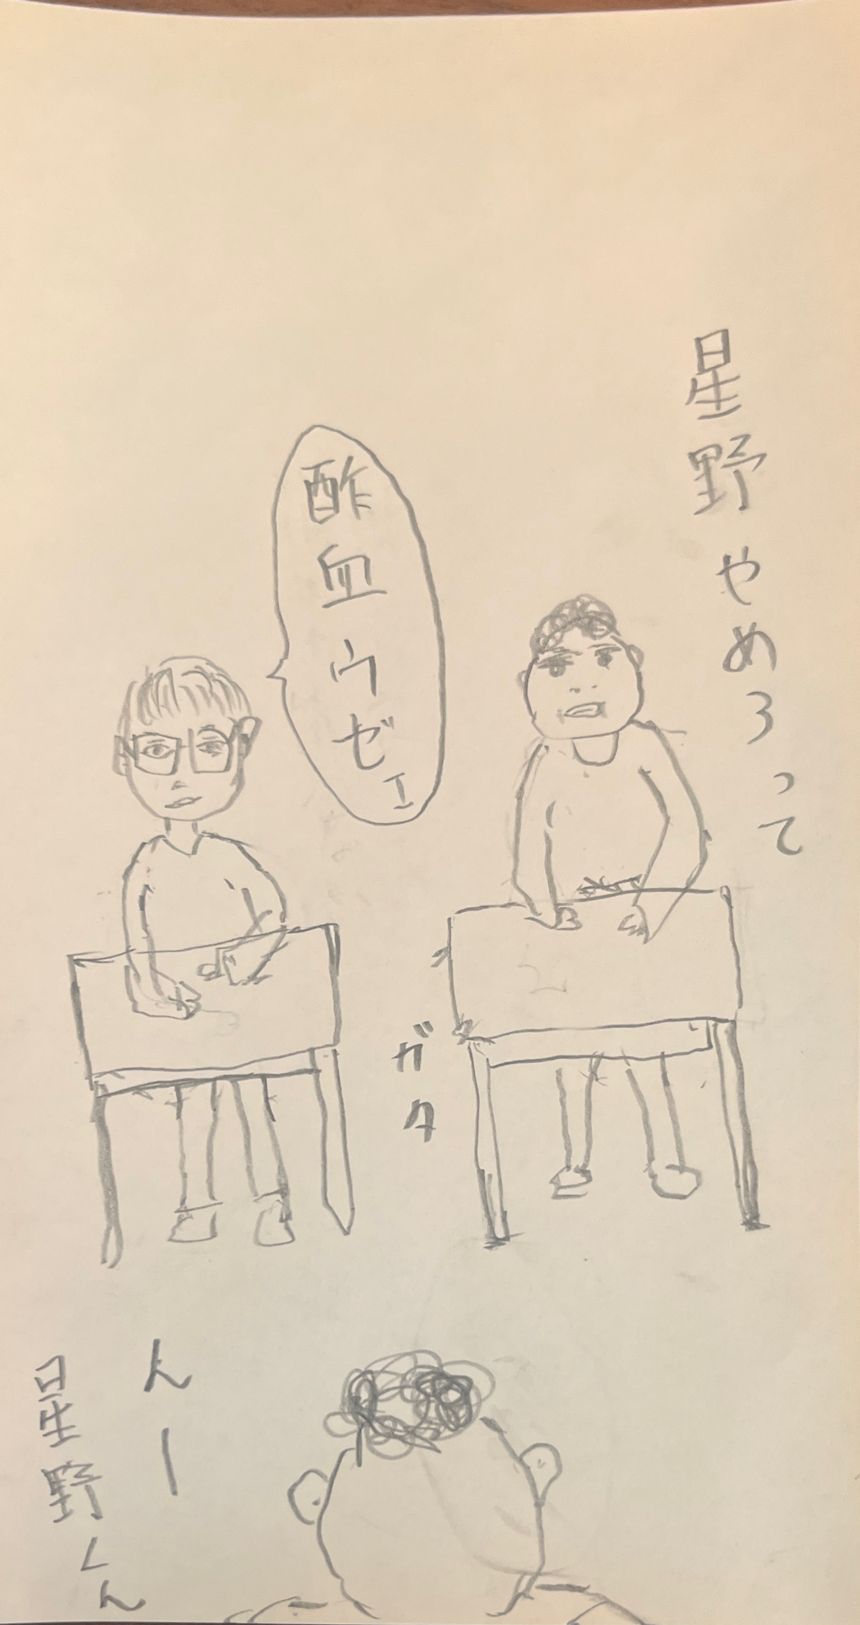 星野やめろって
酢血ウゼェ
ガタ
んー
星野くん